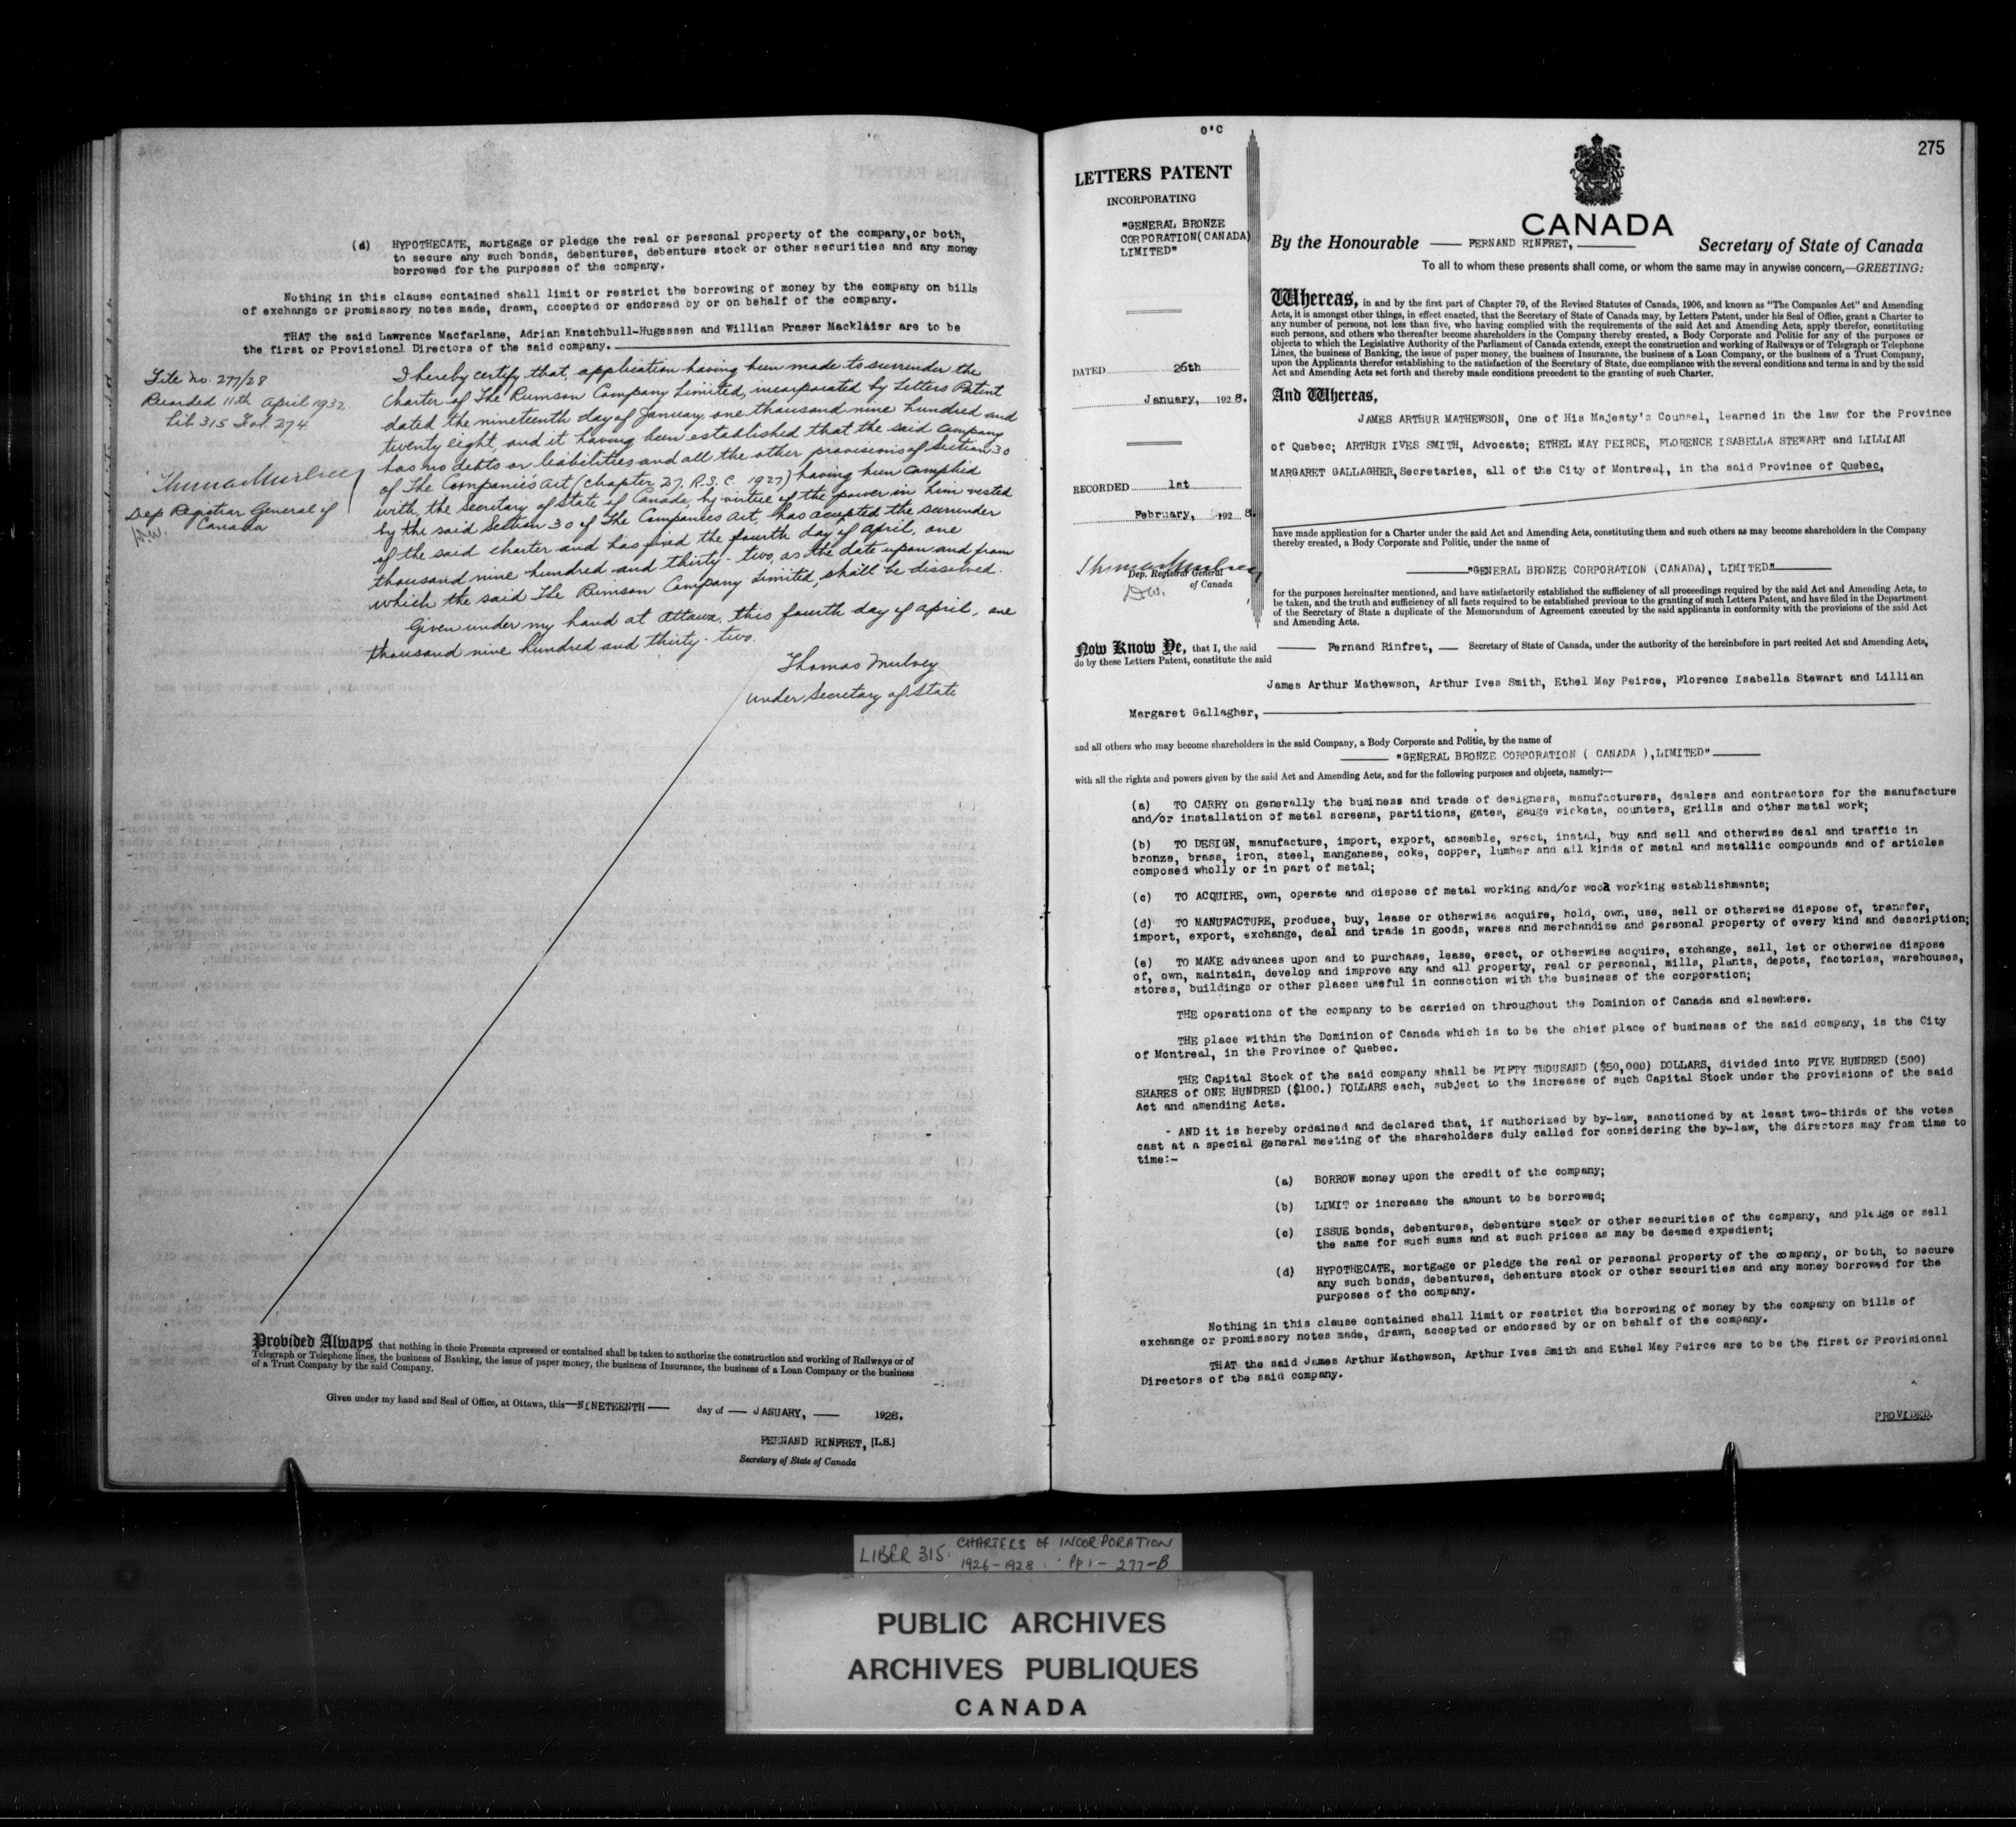 (d) HYPOTHECATE, mortgage or pledge the real or personal property of the company,or both,
to secure any such bonds, debentures, debenture stock or other securities and any money
borrowed for the purposes of the company.
Nothing in this clause contained shall limit or restrict the borrowing of money by the company on bills
of exchange or promissory notes made, drawn, accepted or endorsed by or on behalf of the company.
THAT the said Lawrence Macfarlane, Adrian Knatchbull-Hugessen and William Fraser Macklaier are to be
the first or Provisional Directors of the said company.
File no. 277/28
Recorded 11th April 1932
Lib 315 Fol. 274.
Thomas Mulvey
Dep Registrar General of
Canada
I hereby certify that, application having been made to surrender the
Charter of The Rumson Company Limited, incorporated by Letters Patent
dated the nineteenth day of January, one thousand nine hundred and
twenty eight, and it having been established that the said Company
has no debts or liabilities and all the other provisions of Section 30
of The Companies Act (Chapter 27, R.S.C. 1927) having been complied
with, the Secretary of State of Canada, by virtue of the power in him vested
by the said Section 30 of The Companies Act, has accepted the surrender
of the said charter and has fixed the fourth day of April, one
thousand nine hundred and thirty-two, as the date upon and from
which the said The Rumson Company Limited, shall be dissolved.
Given under my hand at Ottawa, this fourth day of April, one
thousand nine hundred and thirty-two.
Thomas Mulvey
Under Secretary of State
Provided Always that nothing in these Presents expressed or contained shall be taken to authorize the construction and working of Railways or of
Telegraph or Telephone lines, the business of Banking, the issue of paper money, the business of Insurance, the business of a Loan Company or the business
of a Trust Company by the said Company.
Given under my hand and Seal of Office, at Ottawa, this—NINETEENTH— day of — JANUARY, — 1928.
FERNAND RINFRET, [L.S.]
Secretary of State of Canada
O'C
LETTERS PATENT
INCORPORATING
"GENERAL BRONZE
CORPORATION(CANADA)
LIMITED"
DATED 26th
January, 1928.
RECORDED 1st
February, 1928.
Thomas Mulvey
Dep. Registrar General
of Canada
275
CANADA
By the Honourable — FERNAND RINFRET, — Secretary of State of Canada
To all to whom these presents shall come, or whom the same may in anywise concern,—GREETING:
Whereas, in and by the first part of Chapter 79, of the Revised Statutes of Canada, 1906, and known as "The Companies Act" and Amending
Acts, it is amongst other things, in effect enacted, that the Secretary of State of Canada may, by Letters Patent, under his Seal of Office, grant a Charter to
any number of persons, not less than five, who having complied with the requirements of the said Act and Amending Acts, apply therefor, constituting
such persons, and others who thereafter become shareholders in the Company thereby created, a Body Corporate and Politic for any of the purposes or
objects to which the Legislative Authority of the Parliament of Canada extends, except the construction and working of Railways or of Telegraph or Telephone
Lines, the business of Banking, the issue of paper money, the business of Insurance, the business of a Loan Company, or the business of a Trust Company,
upon the Applicants therefor establishing to the satisfaction of the Secretary of State, due compliance with the several conditions and terms in and by the said
Act and Amending Acts set forth and thereby made conditions precedent to the granting of such Charter.
And Whereas,
JAMES ARTHUR MATHEWSON, One of His Majesty's Counsel, learned in the law for the Province
of Quebec; ARTHUR IVES SMITH, Advocate; ETHEL MAY PEIRCE, FLORENCE ISABELLA STEWART and LILLIAN
MARGARET GALLAGHER,Secretaries, all of the City of Montreal, in the said Province of Quebec,
have made application for a Charter under the said Act and Amending Acts, constituting them and such others as may become shareholders in the Company
thereby created, a Body Corporate and Politic, under the name of
"GENERAL BRONZE CORPORATION (CANADA), LIMITED"
for the purposes hereinafter mentioned, and have satisfactorily established the sufficiency of all proceedings required by the said Act and Amending Acts, to
be taken, and the truth and sufficiency of all facts required to be established previous to the granting of such Letters Patent, and have filed in the Department
of the Secretary of State a duplicate of the Memorandum of Agreement executed by the said applicants in conformity with the provisions of the said Act
and Amending Acts.
Now Know Ye, that I, the said — Fernand Rinfret, — Secretary of State of Canada, under the authority of the hereinbefore in part recited Act and Amending Acts,
do by these Letters Patent, constitute the said
James Arthur Mathewson, Arthur Ives Smith, Ethel May Peirce, Florence Isabella Stewart and Lillian
Margaret Gallagher,
and all others who may become shareholders in the said Company, a Body Corporate and Politic, by the name of
"GENERAL BRONZE CORPORATION ( CANADA ),LIMITED"
with all the rights and powers given by the said Act and Amending Acts, and for the following purposes and objects, namely:—
(a) TO CARRY on generally the business and trade of designers, manufacturers, dealers and contractors for the manufacture
and/or installation of metal screens, partitions, gates, gauge wickets, counters, grills and other metal work;
(b) TO DESIGN, manufacture, import, export, assemble, erect, instal, buy and sell and otherwise deal and traffic in
bronze, brass, iron, steel, manganese, coke, copper, lumber and all kinds of metal and metallic compounds and of articles
composed wholly or in part of metal;
(c) TO ACQUIRE, own, operate and dispose of metal working and/or wood working establishments;
(d) TO MANUFACTURE, produce, buy, lease or otherwise acquire, hold, own, use, sell or otherwise dispose of, transfer,
import, export, exchange, deal and trade in goods, wares and merchandise and personal property of every kind and description;
(e) TO MAKE advances upon and to purchase, lease, erect, or otherwise acquire, exchange, sell, let or otherwise dispose
of, own, maintain, develop and improve any and all property, real or personal, mills, plants, depots, factories, warehouses,
stores, buildings or other places useful in connection with the business of the corporation;
THE operations of the company to be carried on throughout the Dominion of Canada and elsewhere.
THE place within the Dominion of Canada which is to be the chief place of business of the said company, is the City
of Montreal, in the Province of Quebec.
THE Capital Stock of the said company shall be FIFTY THOUSAND ($50,000) DOLLARS, divided into FIVE HUNDRED (500)
SHARES of ONE HUNDRED ($100.) DOLLARS each, subject to the increase of such Capital Stock under the provisions of the said
Act and amending Acts.
- AND it is hereby ordained and declared that, if authorized by by-law, sanctioned by at least two-thirds of the votes
cast at a special general meeting of the shareholders duly called for considering the by-law, the directors may from time to
time:-
(a) BORROW money upon the credit of the company;
(b) LIMIT or increase the amount to be borrowed;
(c) ISSUE bonds, debentures, debenture stock or other securities of the company, and pledge or sell
the same for such sums and at such prices as may be deemed expedient;
(d) HYPOTHECATE, mortgage or pledge the real or personal property of the company, or both, to secure
any such bonds, debentures, debenture stock or other securities and any money borrowed for the
purposes of the company.
Nothing in this clause contained shall limit or restrict the borrowing of money by the company on bills of
exchange or promissory notes made, drawn, accepted or endorsed by or on behalf of the company.
THAT the said James Arthur Mathewson, Arthur Ives Smith and Ethel May Peirce are to be the first or Provisional
Directors of the said company.
PROVIDED.
LIBER 315: CHARTERS OF INCORPORATION
1926-1928: Pp 1- 277-B
PUBLIC ARCHIVES
ARCHIVES PUBLIQUES
CANADA